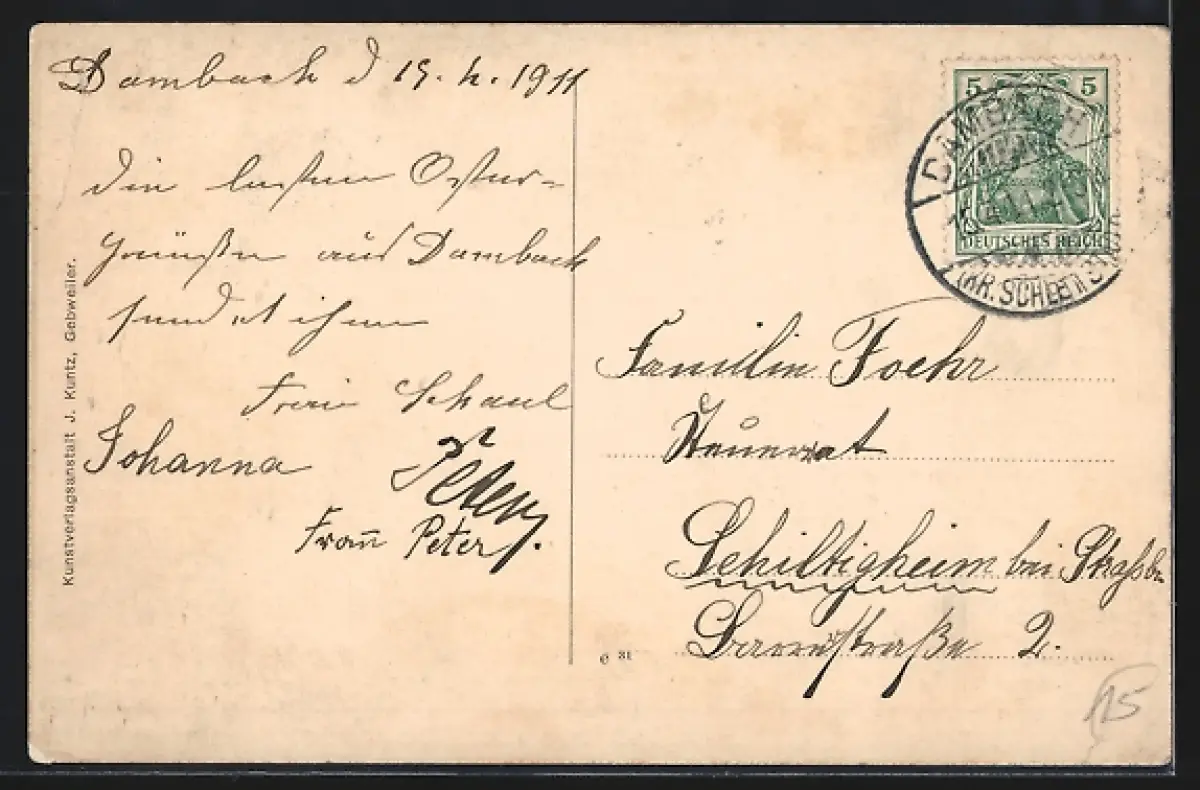 Dambach d 15. 4. 1911
Die besten Oster-
grüße aus Dambach
sendet ihnen
Frau Schaul
Johanna Peter
Frau Peter.
Kunstverlagsanstalt J. Kuntz, Gebweiler.
5 5
DEUTSCHES REICH
DAMBACH
(KR. SCHLETTSTADT)
Familie Foehr
Schiltigheim bei Straßb.
2.
31
15